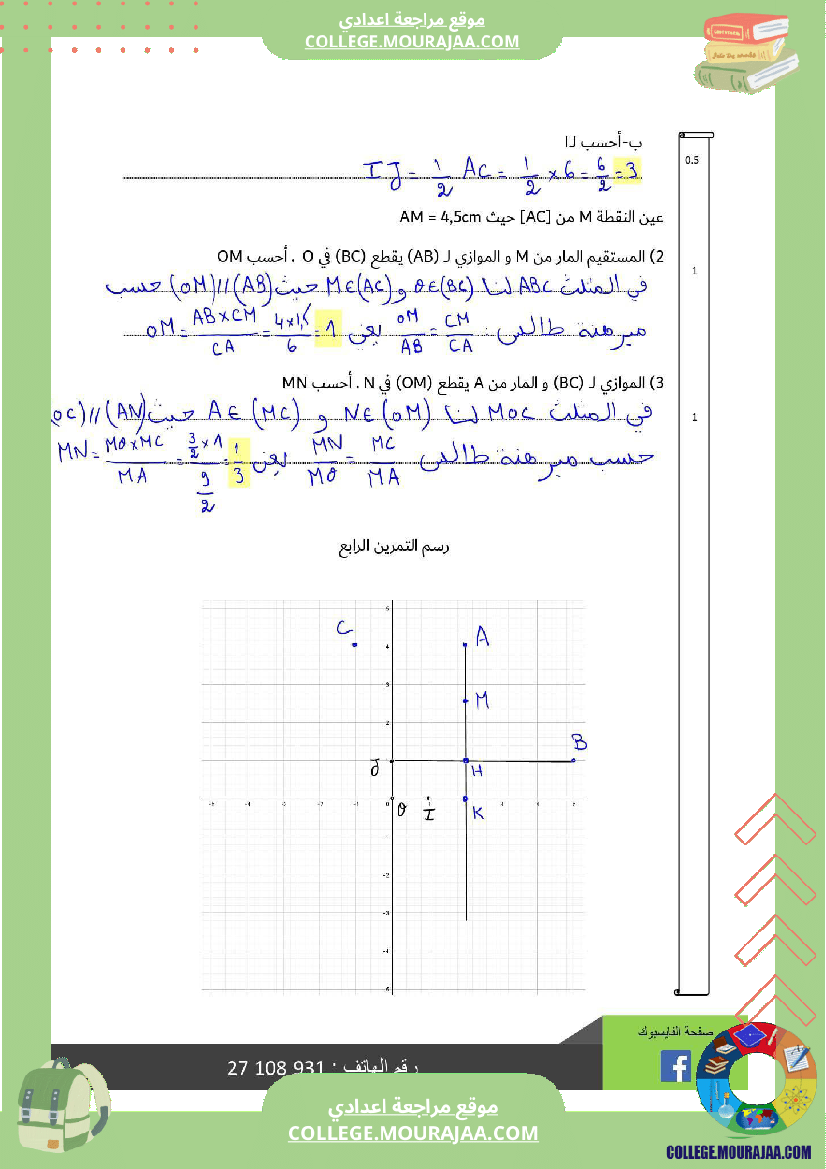 موقع مراجعة اعدادي
COLLEGE.MOURAJAA.COM
ب-أحسب IJ
0.5
IJ = 1/2 AC = 1/2 × 6 = 6/2 = 3
عين النقطة M من [AC] حيث AM = 4,5cm
2) المستقيم المار من M و الموازي لـ (AB) يقطع (BC) في O . أحسب OM
1
في المثلث ABC لنا O∈(BC) و M∈(AC) حيث (OM)//(AB) حسب
مبرهنة طالس: OM/AB = CM/CA يعني OM = AB×CM/CA = 4×1,5/6 = 1
3) الموازي لـ (BC) و المار من A يقطع (OM) في N . أحسب MN
1
في المثلث MOC لنا N∈(OM) و A∈(MC) حيث (AN)//(OC)
حسب مبرهنة طالس MN/MO = MC/MA يعني MN = MO×MC/MA = 3/2 × 1 / 9/2 = 1/3
رسم التمرين الرابع
C
A
M
B
J
H
O
I
K
صفحة الفايسبوك
رقم الهاتف : 931 108 27
موقع مراجعة اعدادي
COLLEGE.MOURAJAA.COM
COLLEGE.MOURAJAA.COM